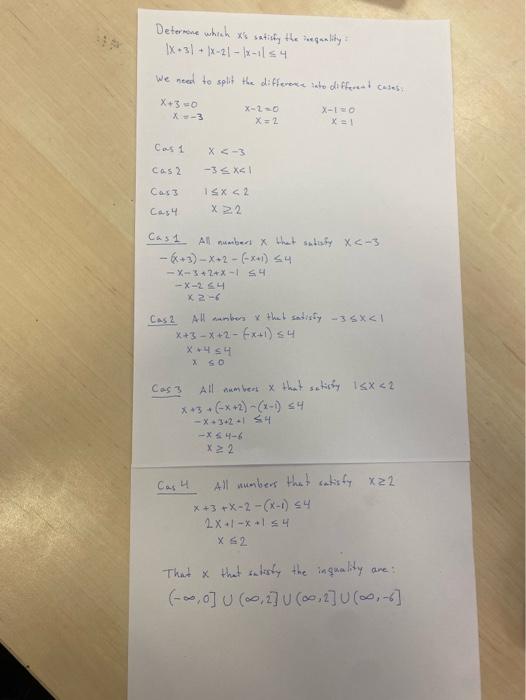 Determine which x's satisfy the inequality:
|x+3| + |x-2| - |x-1| ≤ 4
We need to split the difference into different cases:
x+3=0 x-2=0 x-1=0
x=-3 x=2 x=1
Cas 1 x < -3
Cas 2 -3 ≤ x < 1
Cas 3 1 ≤ x < 2
Cas 4 x ≥ 2
Cas 1 All numbers x that satisfy x < -3
-(x+3) - x+2 - (-x+1) ≤ 4
-x-3+2+x-1 ≤ 4
-x-2 ≤ 4
x ≥ -6
Cas 2 All numbers x that satisfy -3 ≤ x < 1
x+3 - x+2 - (-x+1) ≤ 4
x+4 ≤ 4
x ≤ 0
Cas 3 All numbers x that satisfy 1 ≤ x < 2
x+3 + (-x+2) - (x-1) ≤ 4
-x+3+2+1 ≤ 4
-x ≤ 4-6
x ≥ 2
Cas 4 All numbers that satisfy x ≥ 2
x+3 + x-2 - (x-1) ≤ 4
2x+1-x+1 ≤ 4
x ≤ 2
That x that satisfy the inquality are:
(-∞,0] ∪ (∞,2] ∪ (∞,2] ∪ (∞,-6]